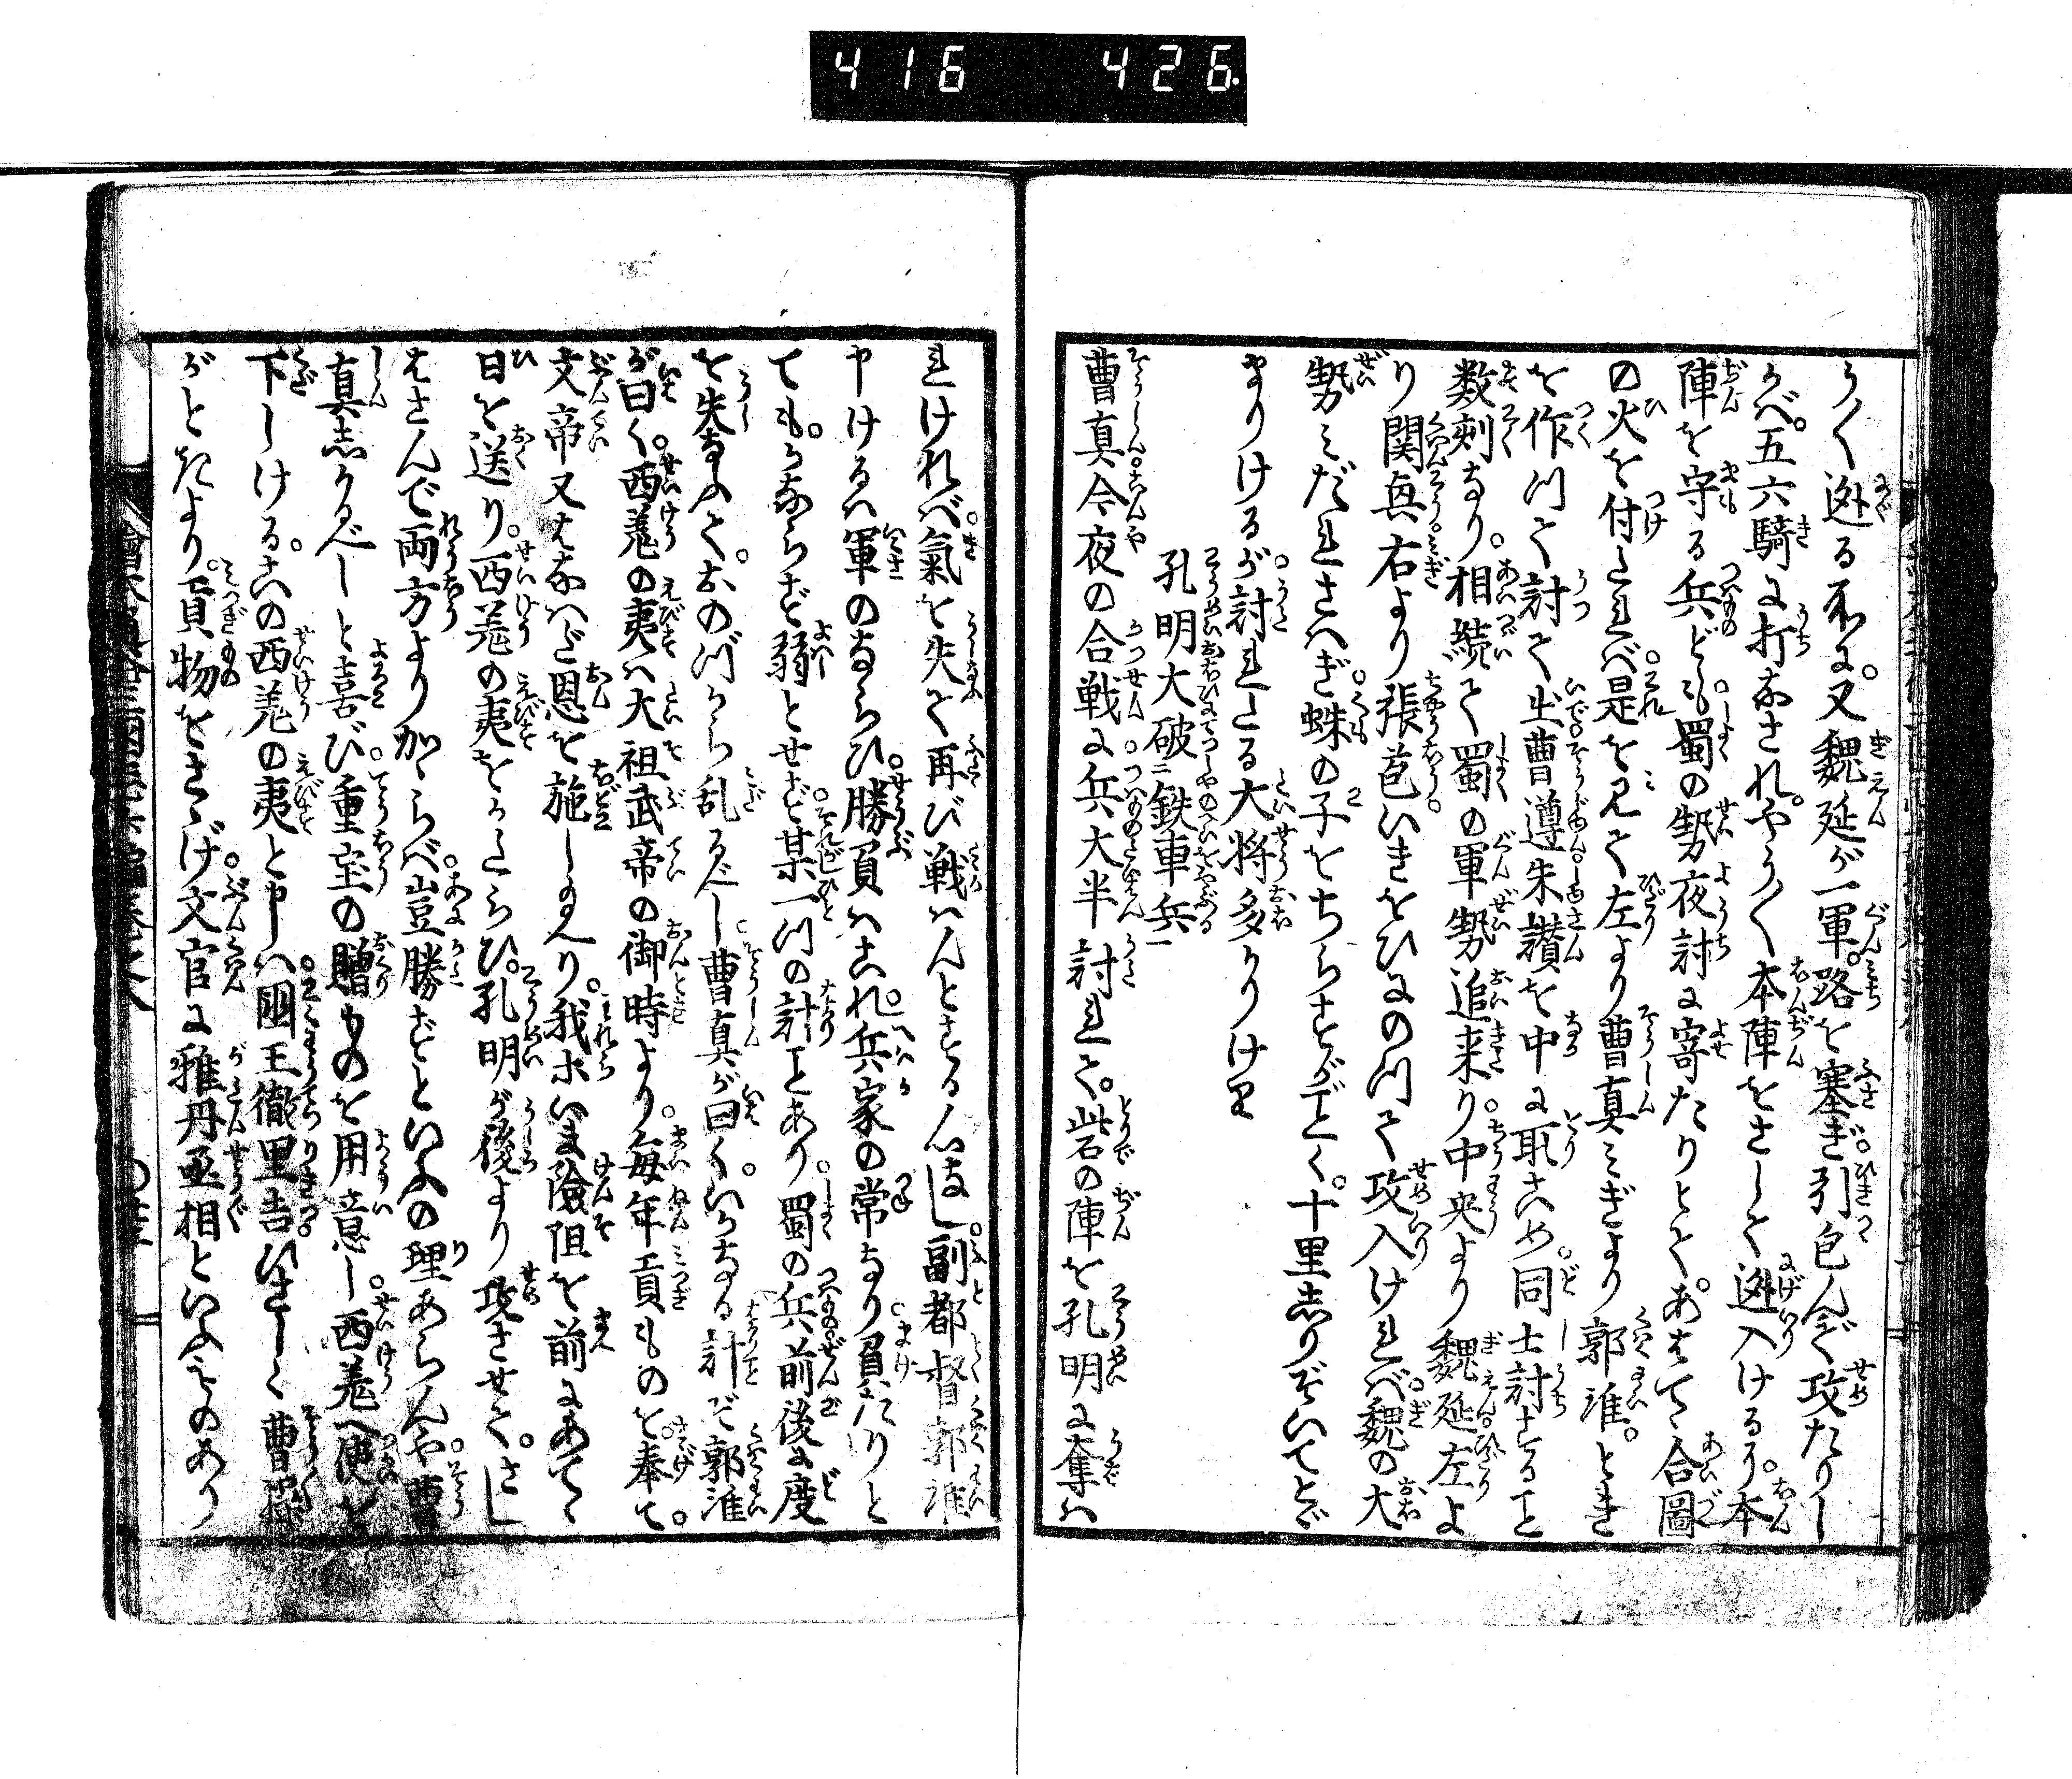 416 426
うく迯る所に。又魏延が一軍。路を塞ぎ。引包んで攻たりし
かバ。五六騎に打なされ。やう〱本陣をさして迯入けるり。本
陣を守る兵ども。蜀の勢夜討に寄たりとて。あはてゝ合圖
の火を付たれバ。是を見て左より曹真みぎより郭淮。とき
を作つて討て出曹遵朱讃を中に取こめ。同士討すること
数刻なり。相続て蜀の軍勢追来り。中央より魏延。左よ
り関興。右より張苞。いきをひにのつて攻入けれバ。魏の大
勢みだれさハぎ。蛛の子をちらすがごとく。十里あまりぞいてとゞ
まりけるが。討れたる大将多かりけり
孔明大破二鉄車兵一
曹真。今夜の合戦に。兵大半討れて。砦の陣を孔明に奪ハ
れけれバ。氣を失て再び戦ハんとする心なし。副都督郭淮
申けるハ軍のならひ。勝負ハこれ。兵家の常なり。負たりと
ても。かならず弱とせず。某一つの計ことあり。蜀の兵。前後に度
を失なふて。おのづから乱るべし。曹真が曰く。いかなる計ぞ。郭淮
が曰く。西羗の夷ハ大祖武帝の御時より。毎年貢ものを。奉て。
文帝又はなハだ恩を施し玉へり。我ホいま險阻を前にあてゝ
日を送り。西羗の夷をかたらひ。孔明が後より攻させて。さし
はさんで両方よりかゝらバ。豈勝ずといふの理あらんや。曹
真志かるべしと喜び。重宝の贈ものを用意し。西羗へ使を
下しける。此の西羗の夷と申ハ。國王徹里吉。ひさしく曹操
がときより。貢物をさゝげ。文官に雅丹丞相といふものあり